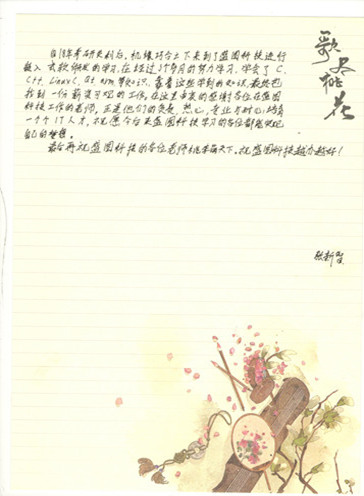 歌尽桃花
自18年考研失利后，机缘巧合之下来到了蓝图科技进行
嵌入式软件开发的学习，在经过5个月的努力学习，学会了C、
C++、LinuxC、Qt、arm等知识，靠着这些学到的知识，最终也
找到一份薪资可观的工作。在这里真实的感谢各位在蓝图
科技工作的老师，正是他们的负责，热心，专业才精心培育
一个个IT人才，祝愿今后来蓝图科技学习的各位都能实现
自己的梦想。
最后再祝蓝图科技的各位老师桃李满天下，祝蓝图科技越办越好！
张新